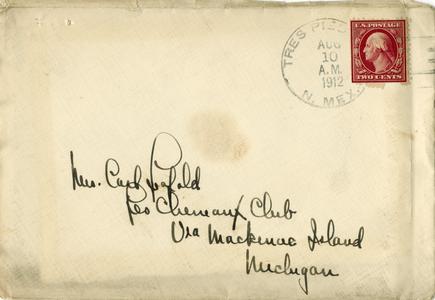 TRES PIED
AUG
10
A.M.
1912
N. MEX.
U.S. POSTAGE
TWO CENTS
Mrs. Carl
Les Cheneaux Club
Via Mackinac Island
Michigan